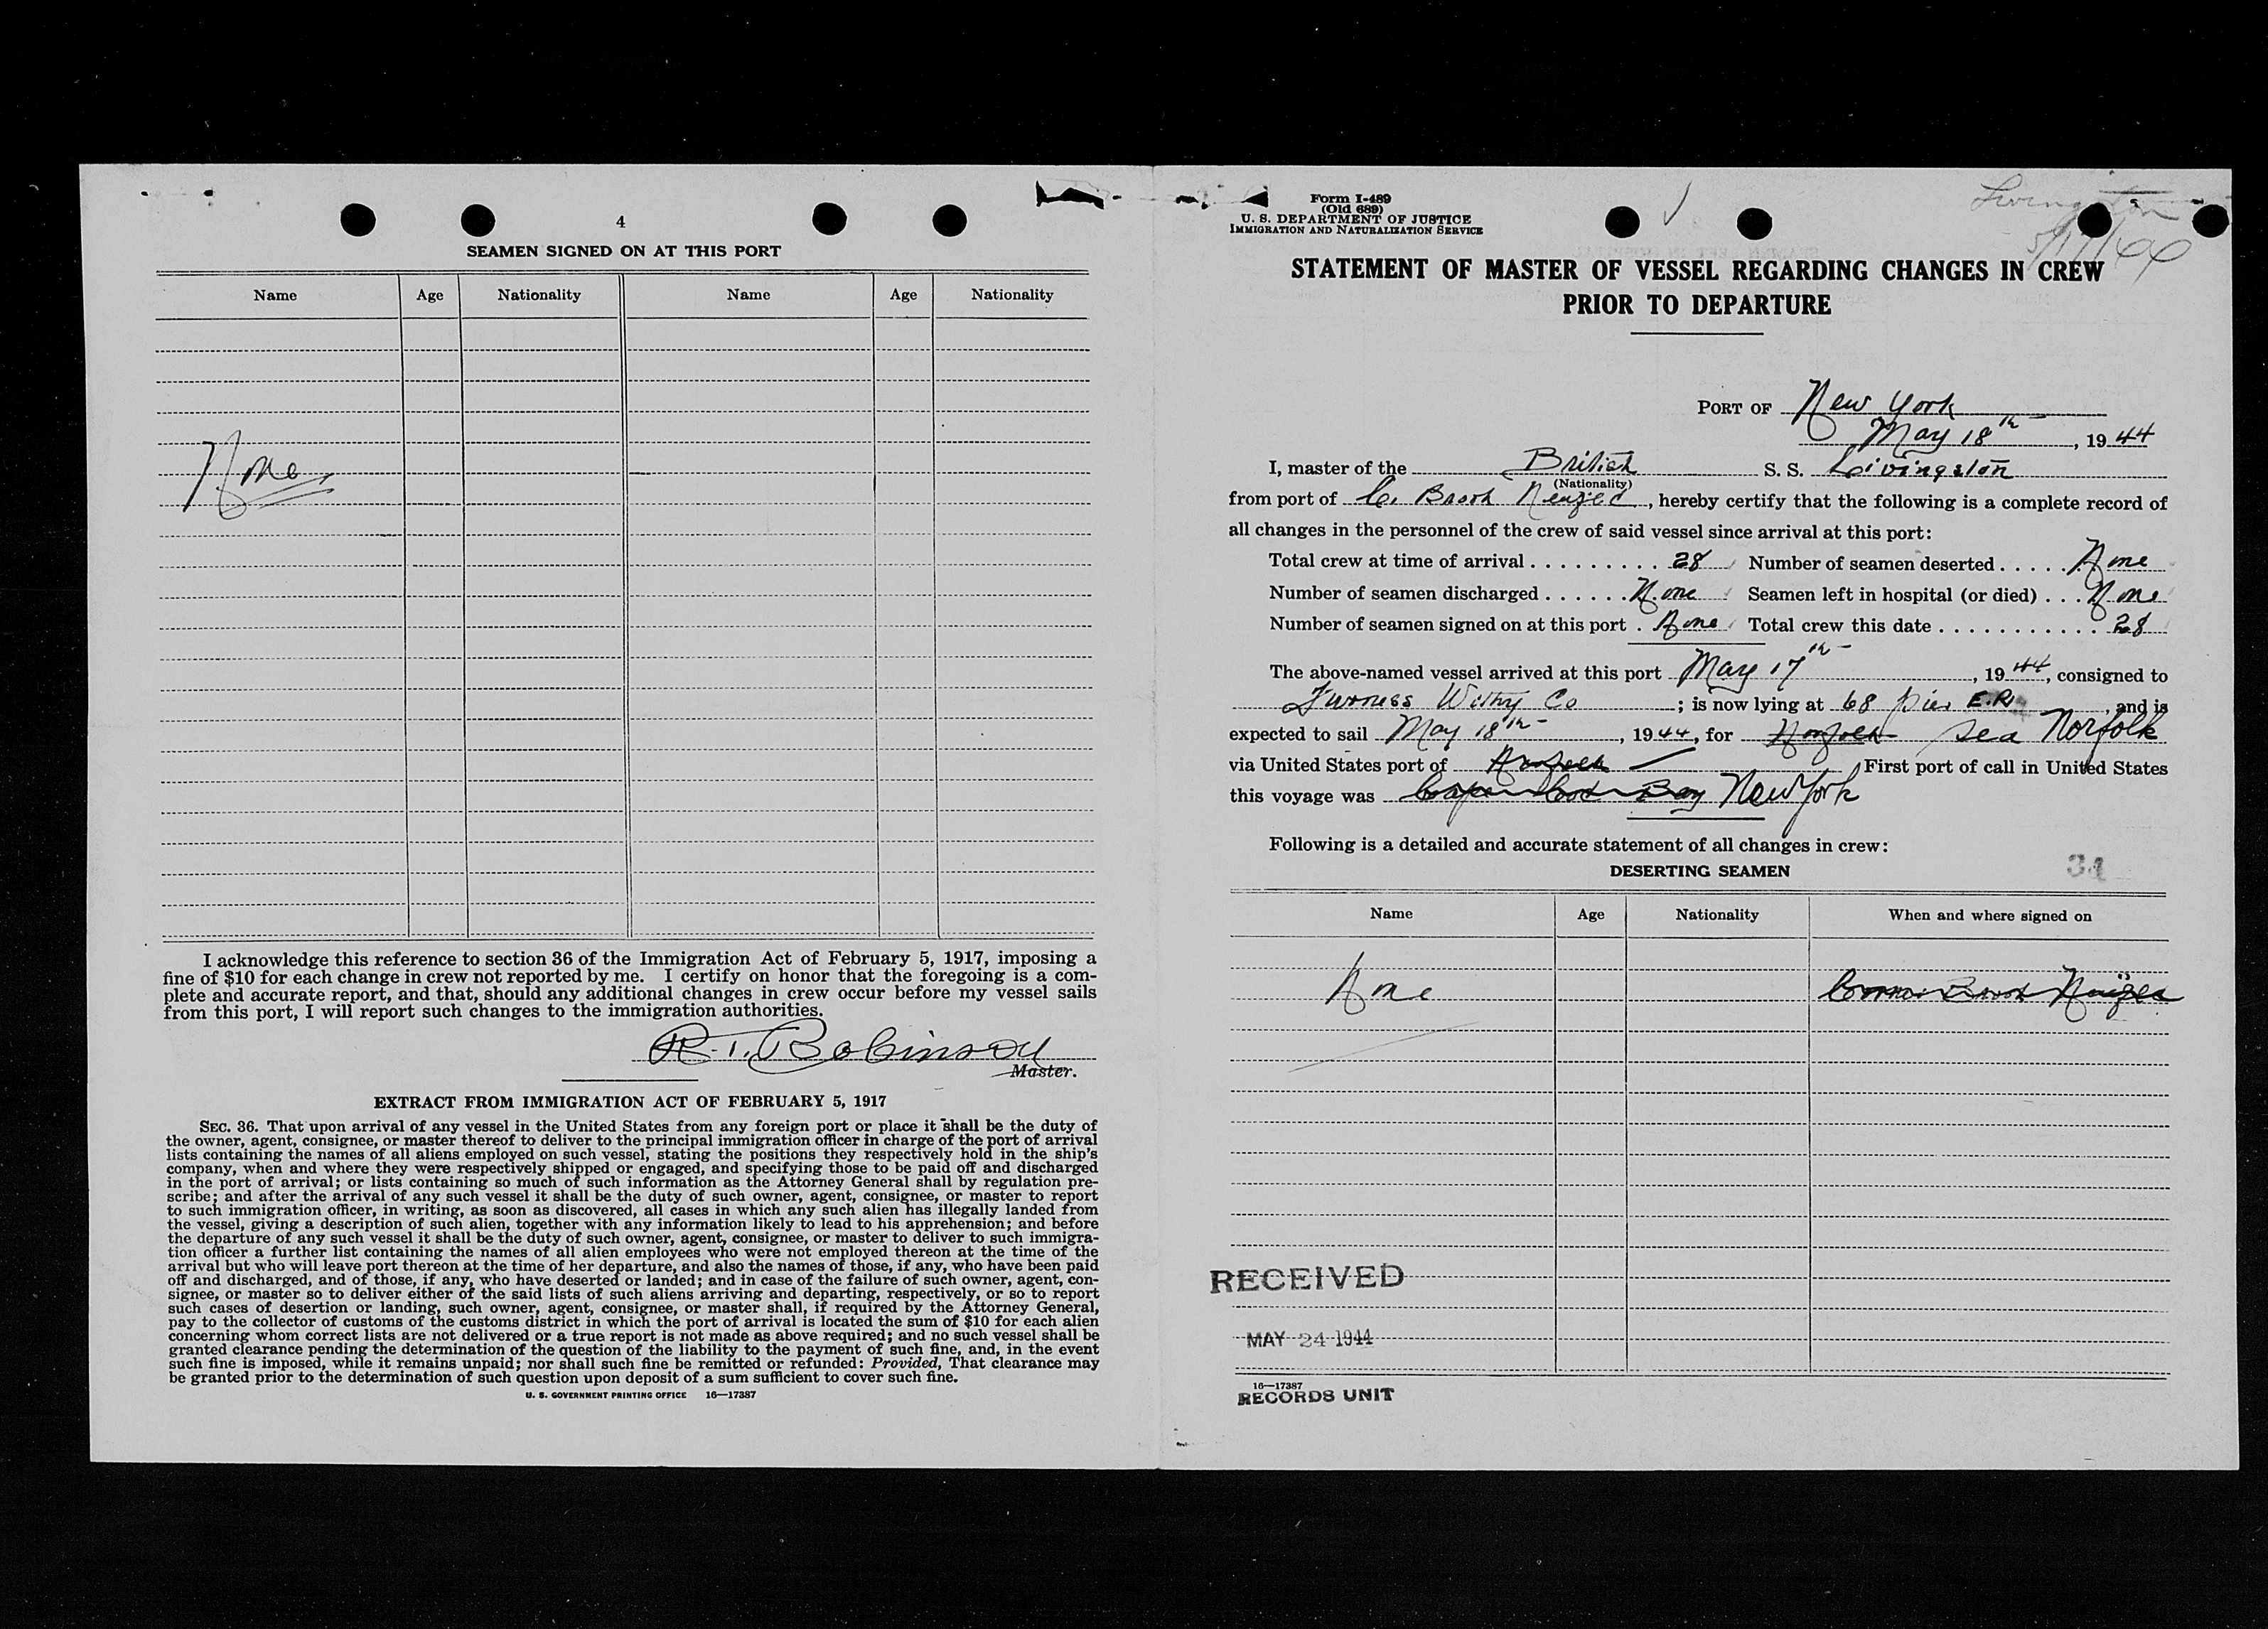 4
SEAMEN SIGNED ON AT THIS PORT
Name Age Nationality Name Age Nationality
None
I acknowledge this reference to section 36 of the Immigration Act of February 5, 1917, imposing a
fine of $10 for each change in crew not reported by me. I certify on honor that the foregoing is a com-
plete and accurate report, and that, should any additional changes in crew occur before my vessel sails
from this port, I will report such changes to the immigration authorities.
R. T. Robinson
Master.
EXTRACT FROM IMMIGRATION ACT OF FEBRUARY 5, 1917
SEC. 36. That upon arrival of any vessel in the United States from any foreign port or place it shall be the duty of
the owner, agent, consignee, or master thereof to deliver to the principal immigration officer in charge of the port of arrival
lists containing the names of all aliens employed on such vessel, stating the positions they respectively hold in the ship's
company, when and where they were respectively shipped or engaged, and specifying those to be paid off and discharged
in the port of arrival; or lists containing so much of such information as the Attorney General shall by regulation pre-
scribe; and after the arrival of any such vessel it shall be the duty of such owner, agent, consignee, or master to report
to such immigration officer, in writing, as soon as discovered, all cases in which any such alien has illegally landed from
the vessel, giving a description of such alien, together with any information likely to lead to his apprehension; and before
the departure of any such vessel it shall be the duty of such owner, agent, consignee, or master to deliver to such immigra-
tion officer a further list containing the names of all alien employees who were not employed thereon at the time of the
arrival but who will leave port thereon at the time of her departure, and also the names of those, if any, who have been paid
off and discharged, and of those, if any, who have deserted or landed; and in case of the failure of such owner, agent, con-
signee, or master so to deliver either of the said lists of such aliens arriving and departing, respectively, or so to report
such cases of desertion or landing, such owner, agent, consignee, or master shall, if required by the Attorney General,
pay to the collector of customs of the customs district in which the port of arrival is located the sum of $10 for each alien
concerning whom correct lists are not delivered or a true report is not made as above required; and no such vessel shall be
granted clearance pending the determination of the question of the liability to the payment of such fine, and, in the event
such fine is imposed, while it remains unpaid; nor shall such fine be remitted or refunded: Provided, That clearance may
be granted prior to the determination of such question upon deposit of a sum sufficient to cover such fine.
U. S. GOVERNMENT PRINTING OFFICE 16—17387
Form I-489
(Old 689)
U. S. DEPARTMENT OF JUSTICE
IMMIGRATION AND NATURALIZATION SERVICE
Livingston
5/17/44
STATEMENT OF MASTER OF VESSEL REGARDING CHANGES IN CREW
PRIOR TO DEPARTURE
PORT OF New York
May 18th, 1944
I, master of the British S. S. Livingston
(Nationality)
from port of C. Brook, hereby certify that the following is a complete record of
all changes in the personnel of the crew of said vessel since arrival at this port:
Total crew at time of arrival . . . . . . . . . . 28 Number of seamen deserted . . . . . None
Number of seamen discharged . . . . . . None Seamen left in hospital (or died) . . . None
Number of seamen signed on at this port . None Total crew this date . . . . . . . . . . . . 28
The above-named vessel arrived at this port May 17th, 1944, consigned to
Furness Withy Co; is now lying at 68 pier E.R., and is
expected to sail May 18th, 1944, for Norfolk Sea Norfolk
via United States port of Norfolk First port of call in United States
this voyage was Cape Cod Bay New York
Following is a detailed and accurate statement of all changes in crew:
DESERTING SEAMEN
34
Name Age Nationality When and where signed on
None Brook
RECEIVED
MAY 24 1944
16—17387
RECORDS UNIT